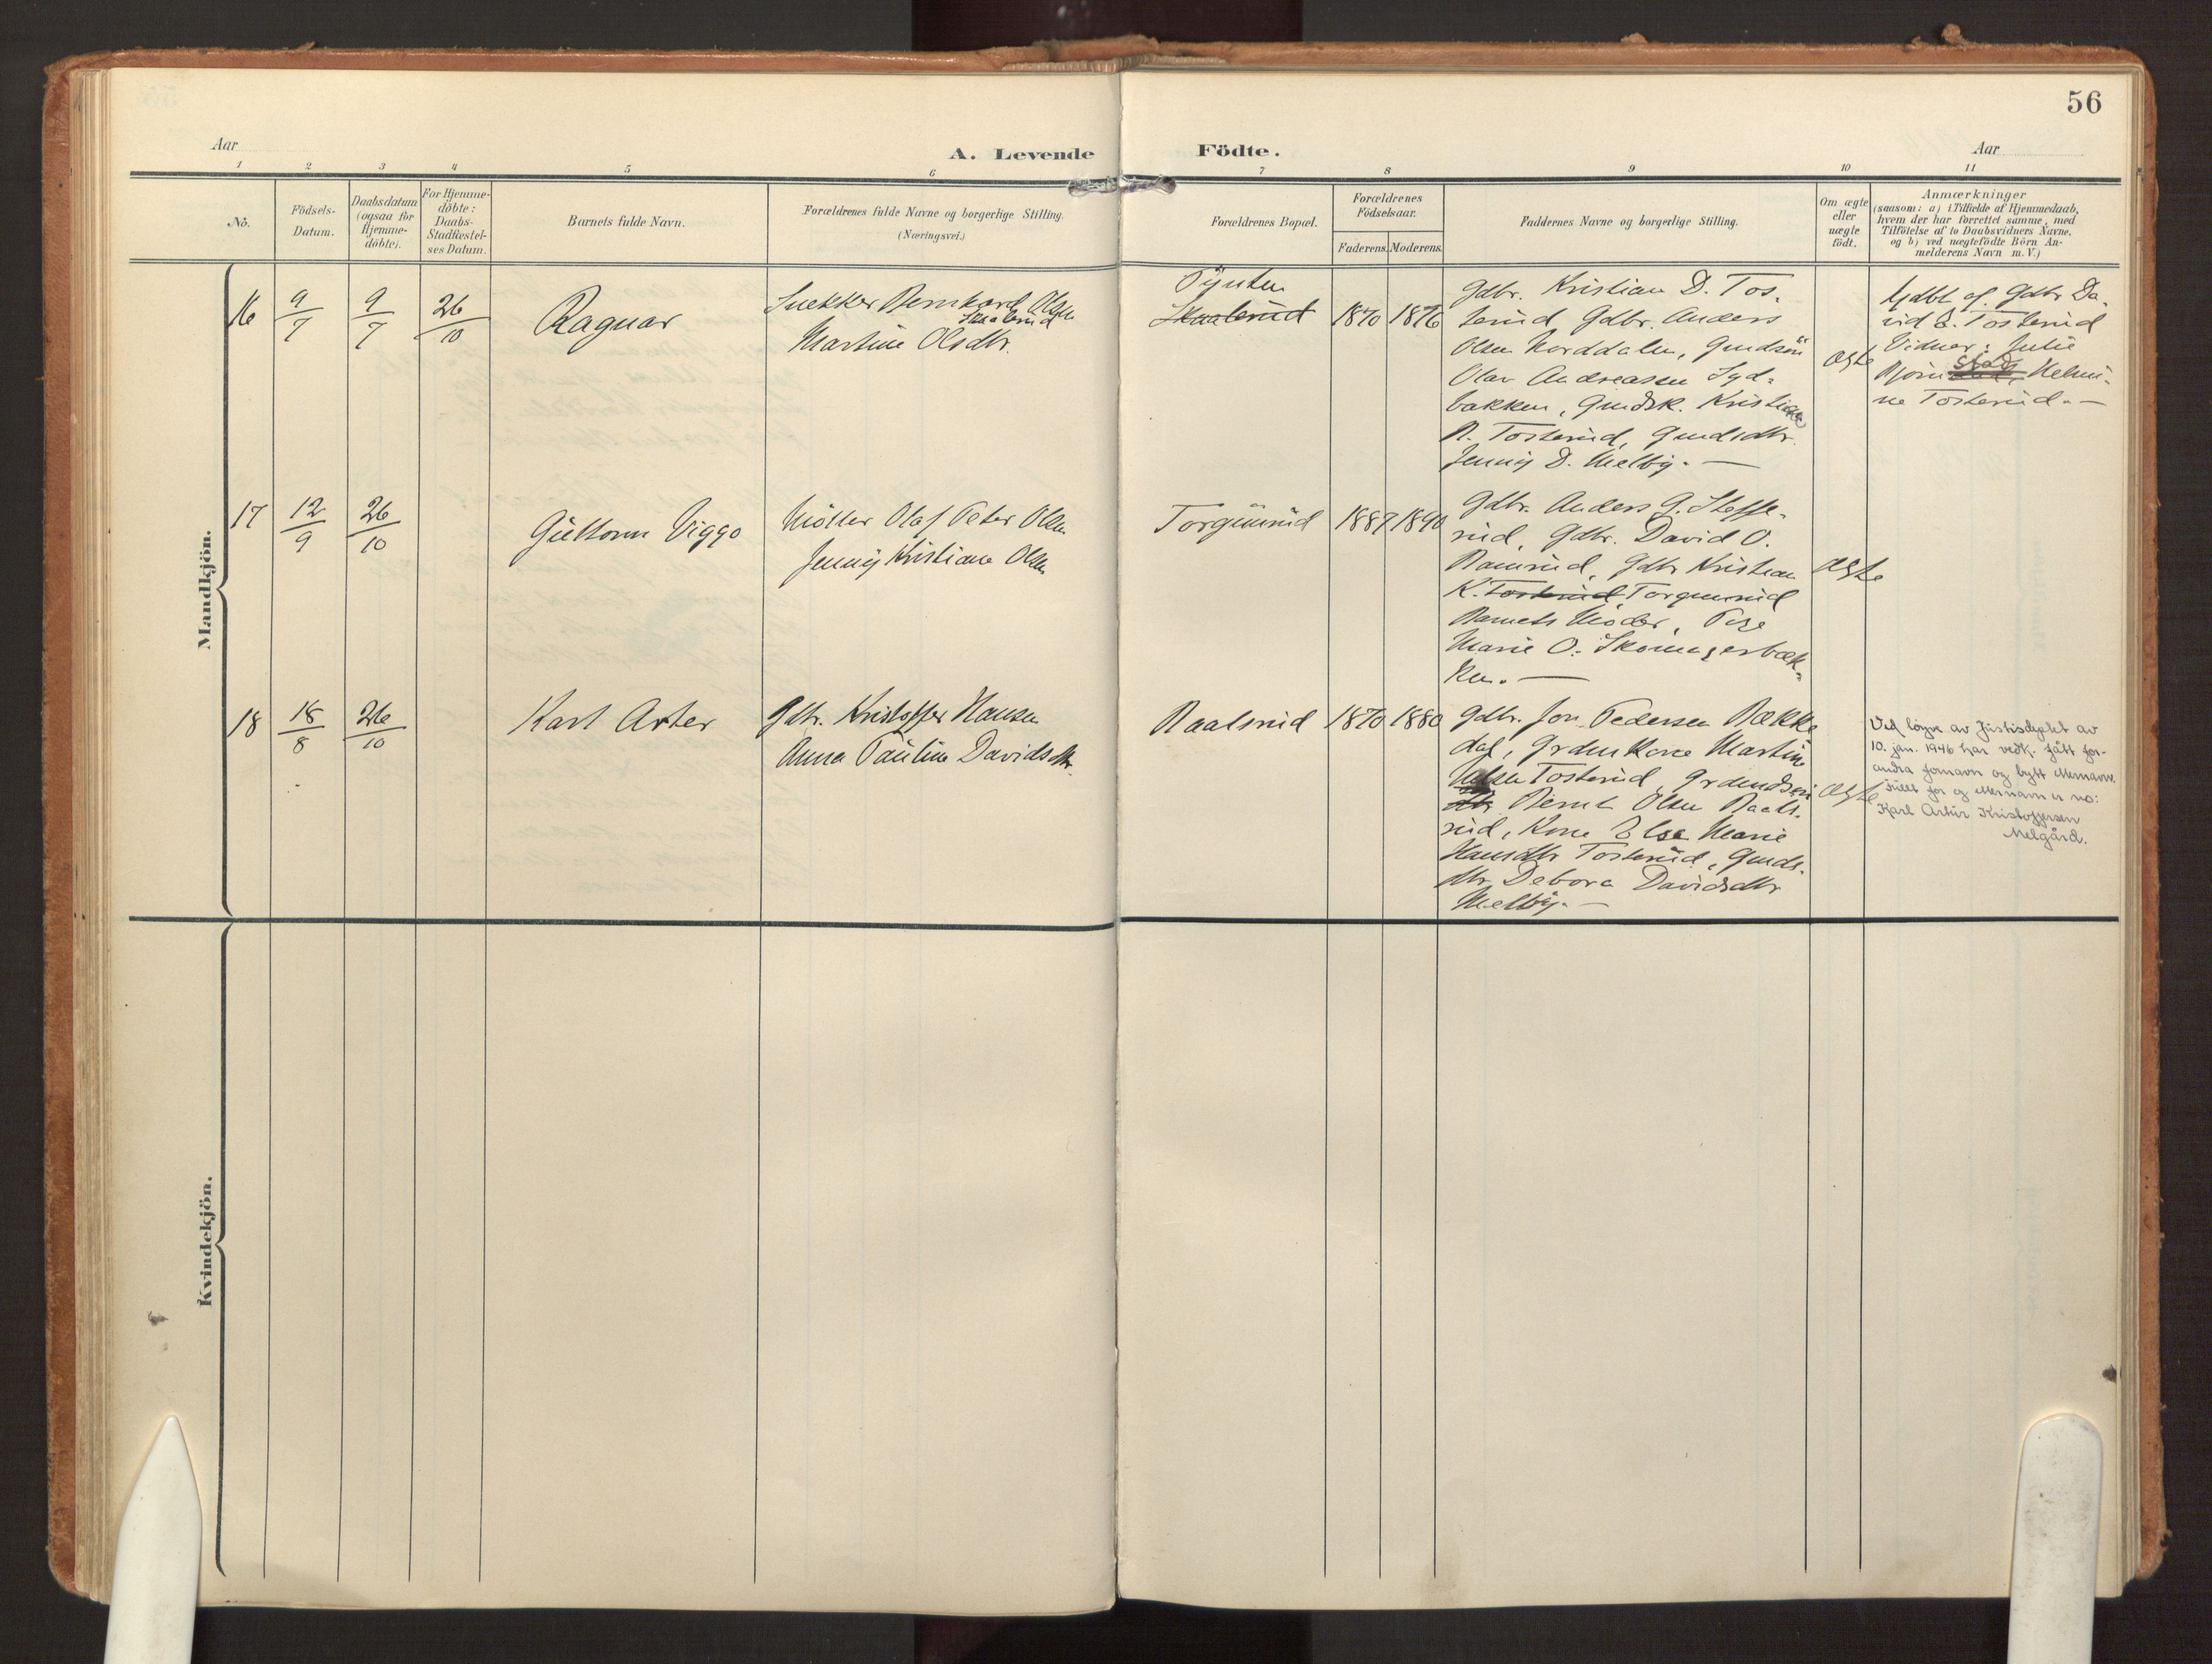 56
Aar
A. Levende Födte.
Aar
1 2 3 4 5 6 7 8 9 10 11
No.
Födsels-
Datum.
Daabsdatum
(ogsaa for
Hjemme-
döbte).
For Hjemme-
döbte:
Daabs-
Stadfæstel-
ses Datum.
Barnets fulde Navn.
Forældrenes fulde Navne og borgerlige Stilling.
(Næringsvei.)
Forældrenes Bopæl.
Forældrenes
Födselsaar.
Faderens. Moderens.
Faddernes Navne og borgerlige Stilling.
Om ægte
eller
uægte
födt.
Anmærkninger
(saasom: a) i Tilfælde af Hjemmedaab,
hvem der har forrettet samme, med
Tilföielse af to Daabsvidners Navne,
og b) ved uægtefödte Börn An-
melderens Navn m.V.)
Mandkjön.
16
9/7
9/7
26/10
Ragnar
Snekker Bernhard Olsen
Skaalerud
Martine Olsdtr.
Pynten
Skaalerud
1870 1876
Gdbr. Kristian D. Tos-
terud, Gdbr. Anders
Olsen Norddalen, Gmdsön
Olav Andreassen Syd-
bakken, Gmdsk. Kristiane
B. Tosterud, Gmdsdtr.
Jenny D. Melby. —
ægte
hjdbt af Gdbr Da-
vid E. Tosterud
Vidner: Julie
Bjørnstad, Helmi-
ne Tosterud. —
17
12/9
26/10
Guttorm Viggo
Möller Olaf Peter Olsen
Jenny Kristiane Olsen
Torgunrud
1887 1890
Gdbr. Anders G. Steffe-
rud, Gdbr. David O.
Ramrud, Gdbr Kristian
K. Tosterud Torgunrud
Barnets Moder, Pige
Marie O. Skomagerbæk-
ken. —
ægte
18
18/8
26/10
Karl Arter
Gdbr. Kristoffer Hansen
Anna Pauline Davidsdtr.
Raalsrud
1870 1880
Gdbr. Jon Pedersen Bække
dal, Grdmkone Martine
Nilsen Tosterud, Grdmdsön
Bernt Olsen Raals-
rud, Kone Else Marie
Hansdtr Tosterud, Gmds-
dtr Debora Davidsdtr
Melby. —
ægte
Ved løyve av Justisdeptet av
10. jan. 1946 har vedk. fått for-
andra fornavn og bytt etternavn.
Fullt for og etternavn er no:
Karl Artur Kristoffersen
Melgård.
Kvindekjön.